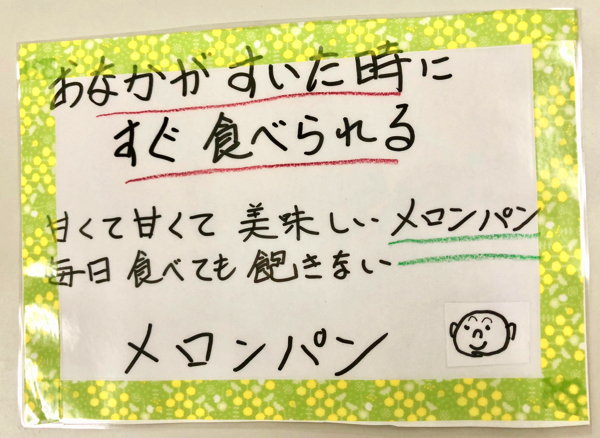 おなかがすいた時に
すぐ食べられる
甘くて甘くて美味しいメロンパン
毎日食べても飽きない
メロンパン